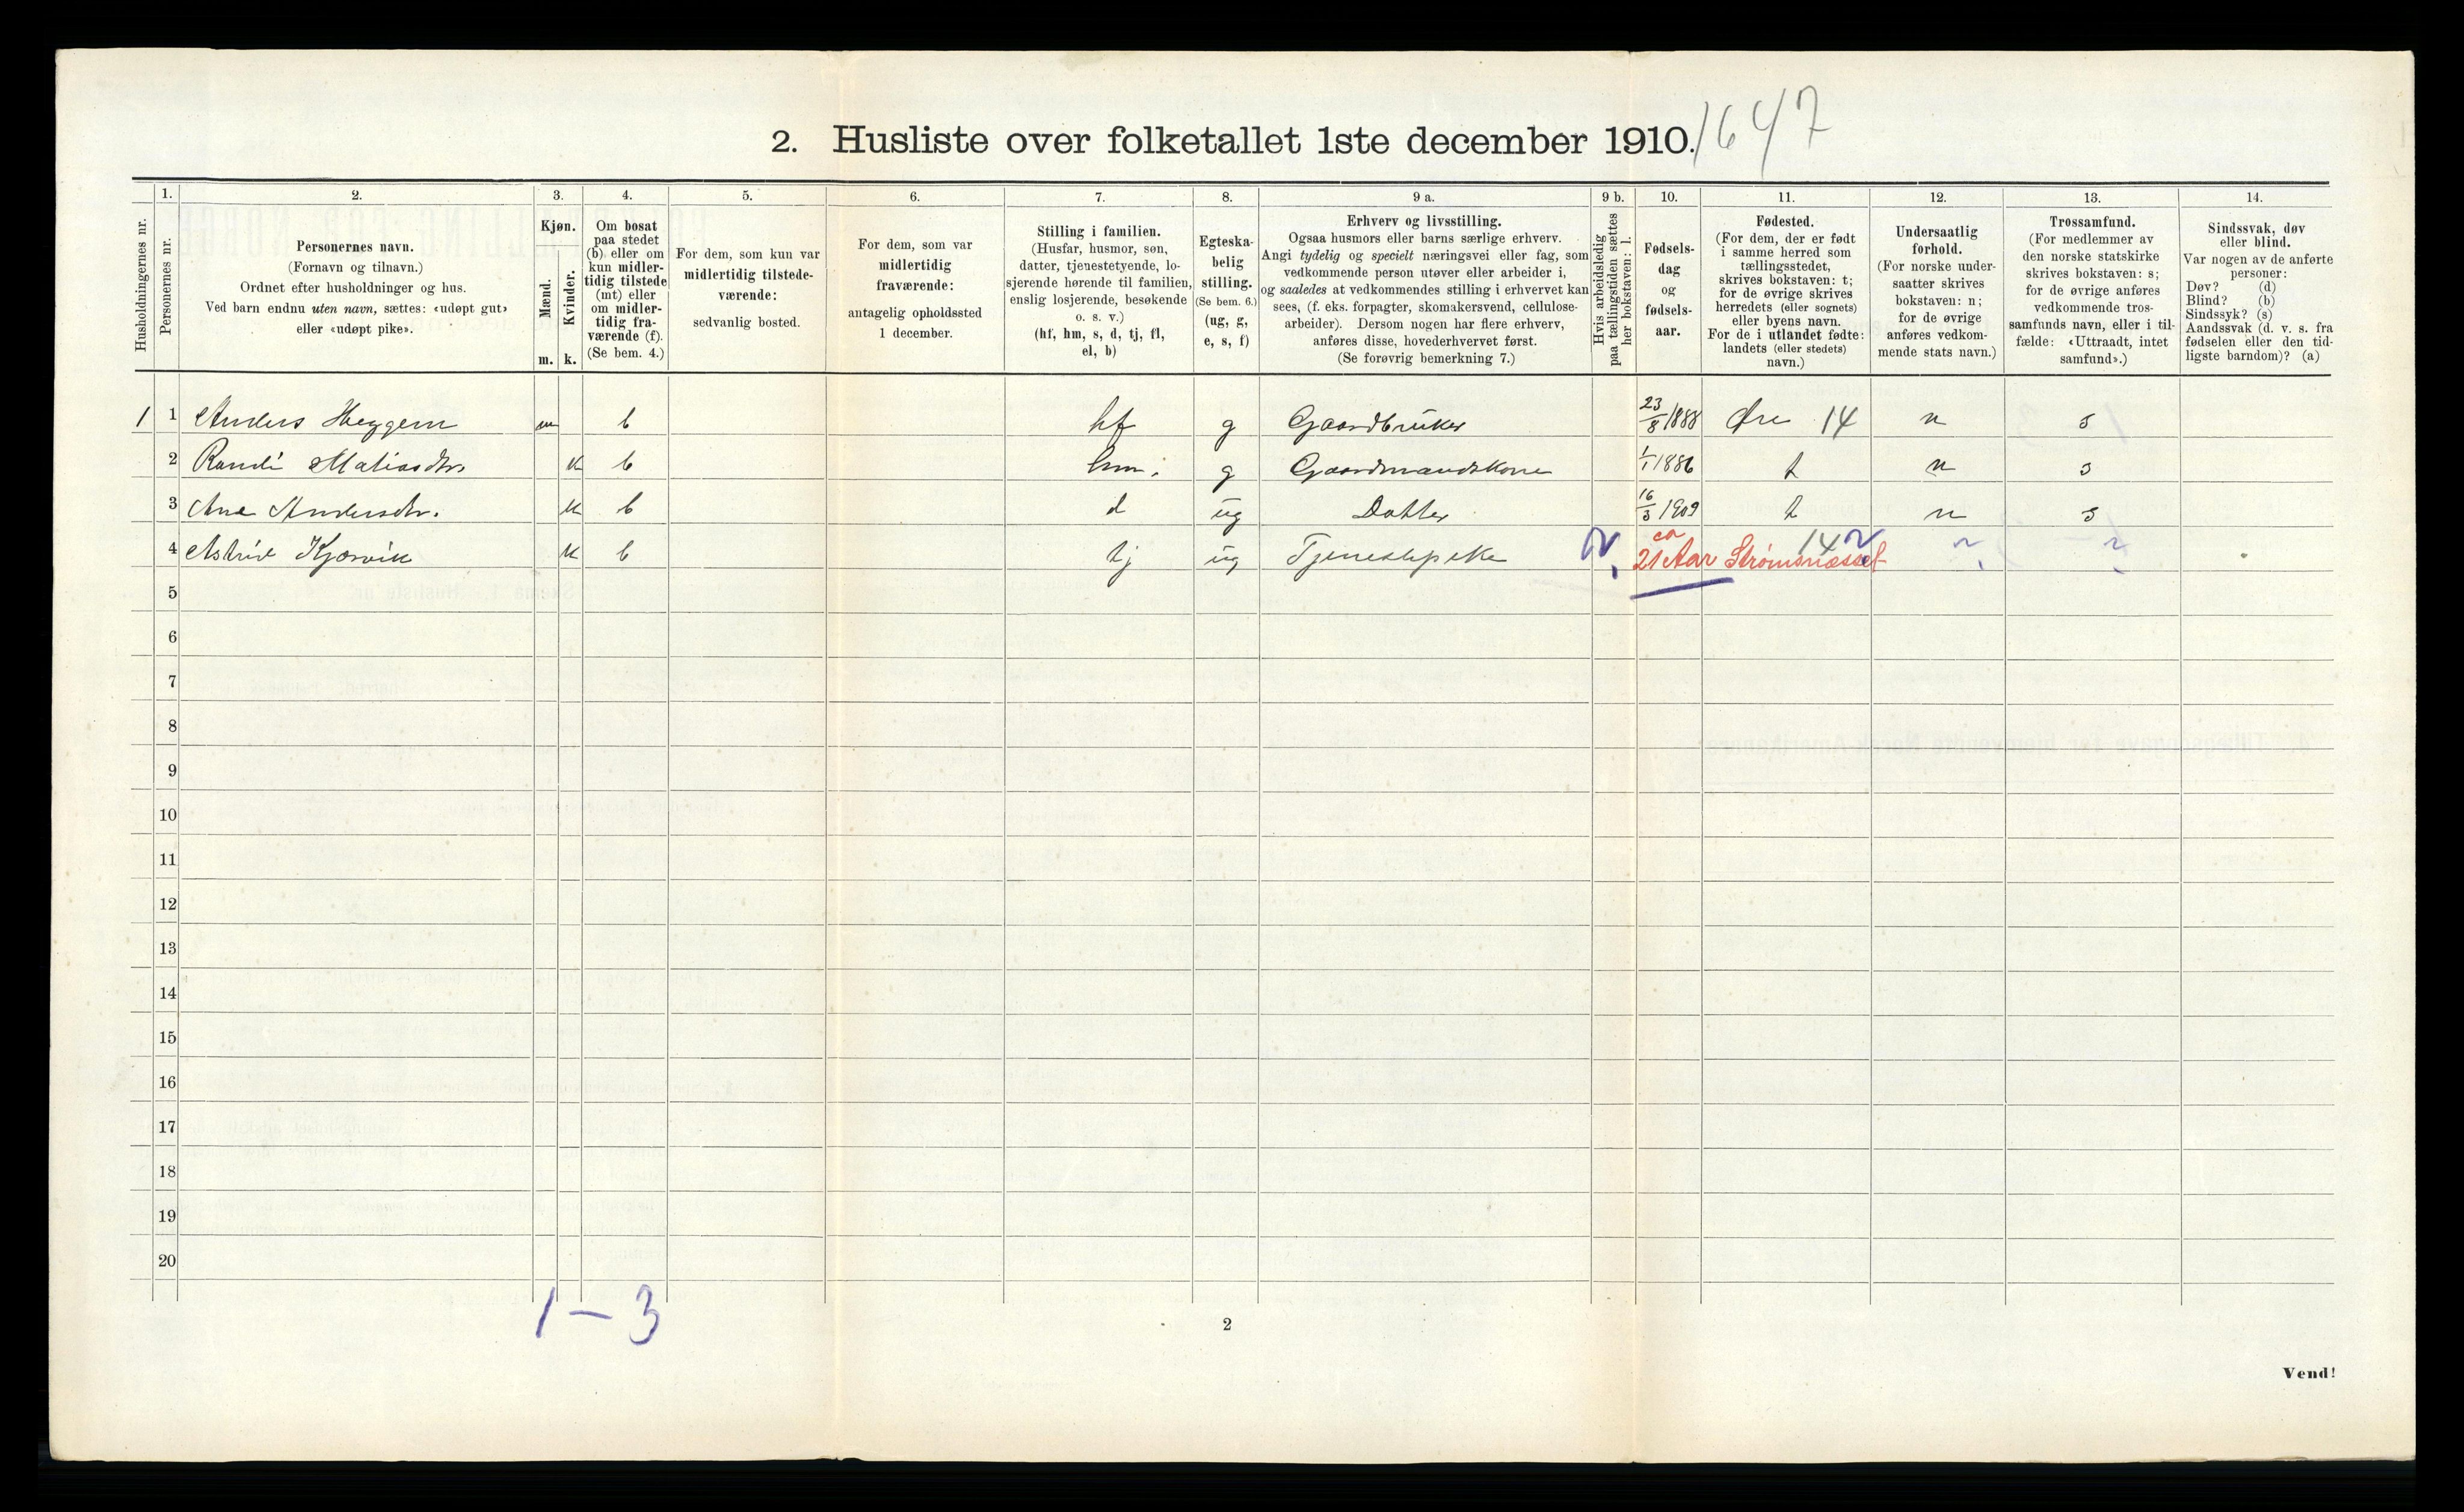 2. Husliste over folketallet 1ste december 1910. 1647
Husholdningernes nr.
1.
Personernes nr.
2.
Personernes navn.
(Fornavn og tilnavn.)
Ordnet efter husholdninger og hus.
Ved barn endnu uten navn, sættes: «udøpt gut»
eller «udøpt pike».
3.
Kjøn.
Mænd.
Kvinder.
m. k.
4.
Om bosat
paa stedet
(b) eller om
kun midler-
tidig tilstede
(mt) eller
om midler-
tidig fra-
værende (f).
(Se bem. 4.)
5.
For dem, som kun var
midlertidig tilstede-
værende:
sedvanlig bosted.
6.
For dem, som var
midlertidig
fraværende:
antagelig opholdssted
1 december.
7.
Stilling i familien.
(Husfar, husmor, søn,
datter, tjenestetyende, lo-
sjerende hørende til familien,
enslig losjerende, besøkende
o. s. v.)
(hf, hm, s, d, tj, fl,
el, b)
8.
Egteska-
belig
stilling.
(Se bem. 6.)
(ug, g,
e, s, f)
9 a.
Erhverv og livsstilling.
Ogsaa husmors eller barns særlige erhverv.
Angi tydelig og specielt næringsvei eller fag, som
vedkommende person utøver eller arbeider i,
og saaledes at vedkommendes stilling i erhvervet kan
sees, (f. eks. forpagter, skomakersvend, cellulose-
arbeider). Dersom nogen har flere erhverv,
anføres disse, hovederhvervet først.
(Se forøvrig bemerkning 7.)
9 b.
Hvis arbeidsledig
paa tællingstiden sættes
her bokstaven: l.
10.
Fødsels-
dag
og
fødsels-
aar.
11.
Fødested.
(For dem, der er født
i samme herred som
tællingsstedet,
skrives bokstaven: t;
for de øvrige skrives
herredets (eller sognets)
eller byens navn.
For de i utlandet fødte:
landets (eller stedets)
navn.)
12.
Undersaatlig
forhold.
(For norske under-
saatter skrives
bokstaven: n;
for de øvrige
anføres vedkom-
mende stats navn.)
13.
Trossamfund.
(For medlemmer av
den norske statskirke
skrives bokstaven: s;
for de øvrige anføres
vedkommende tros-
samfunds navn, eller i til-
fælde: «Uttraadt, intet
samfund».)
14.
Sindssvak, døv
eller blind.
Var nogen av de anførte
personer:
Døv? (d)
Blind? (b)
Sindssyk? (s)
Aandssvak (d. v. s. fra
fødselen eller den tid-
ligste barndom)? (a)
1 1 Anders Heggem m b hf g Gaardbruker 23/8 1888 Øre 14 n s
2 Randi Matiasdtr. k b hm. g Gaardmandskone 1/1 1886 t n s
3 Ane Andersdtr. k b d ug Datter 16/3 1909 t n s
4 Astrid Kjørvik k b tj ug Tjenestepike ca 21 Aar Strømsnæsset 14
5
6
7
8
9
10
11
12
13
14
15
16
17
18
19
20
1 - 3
2
Vend!